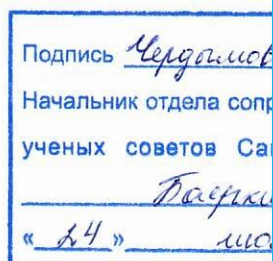 Подпись Чердымов
Начальник отдела сопр
ученых советов Са
« 24 »